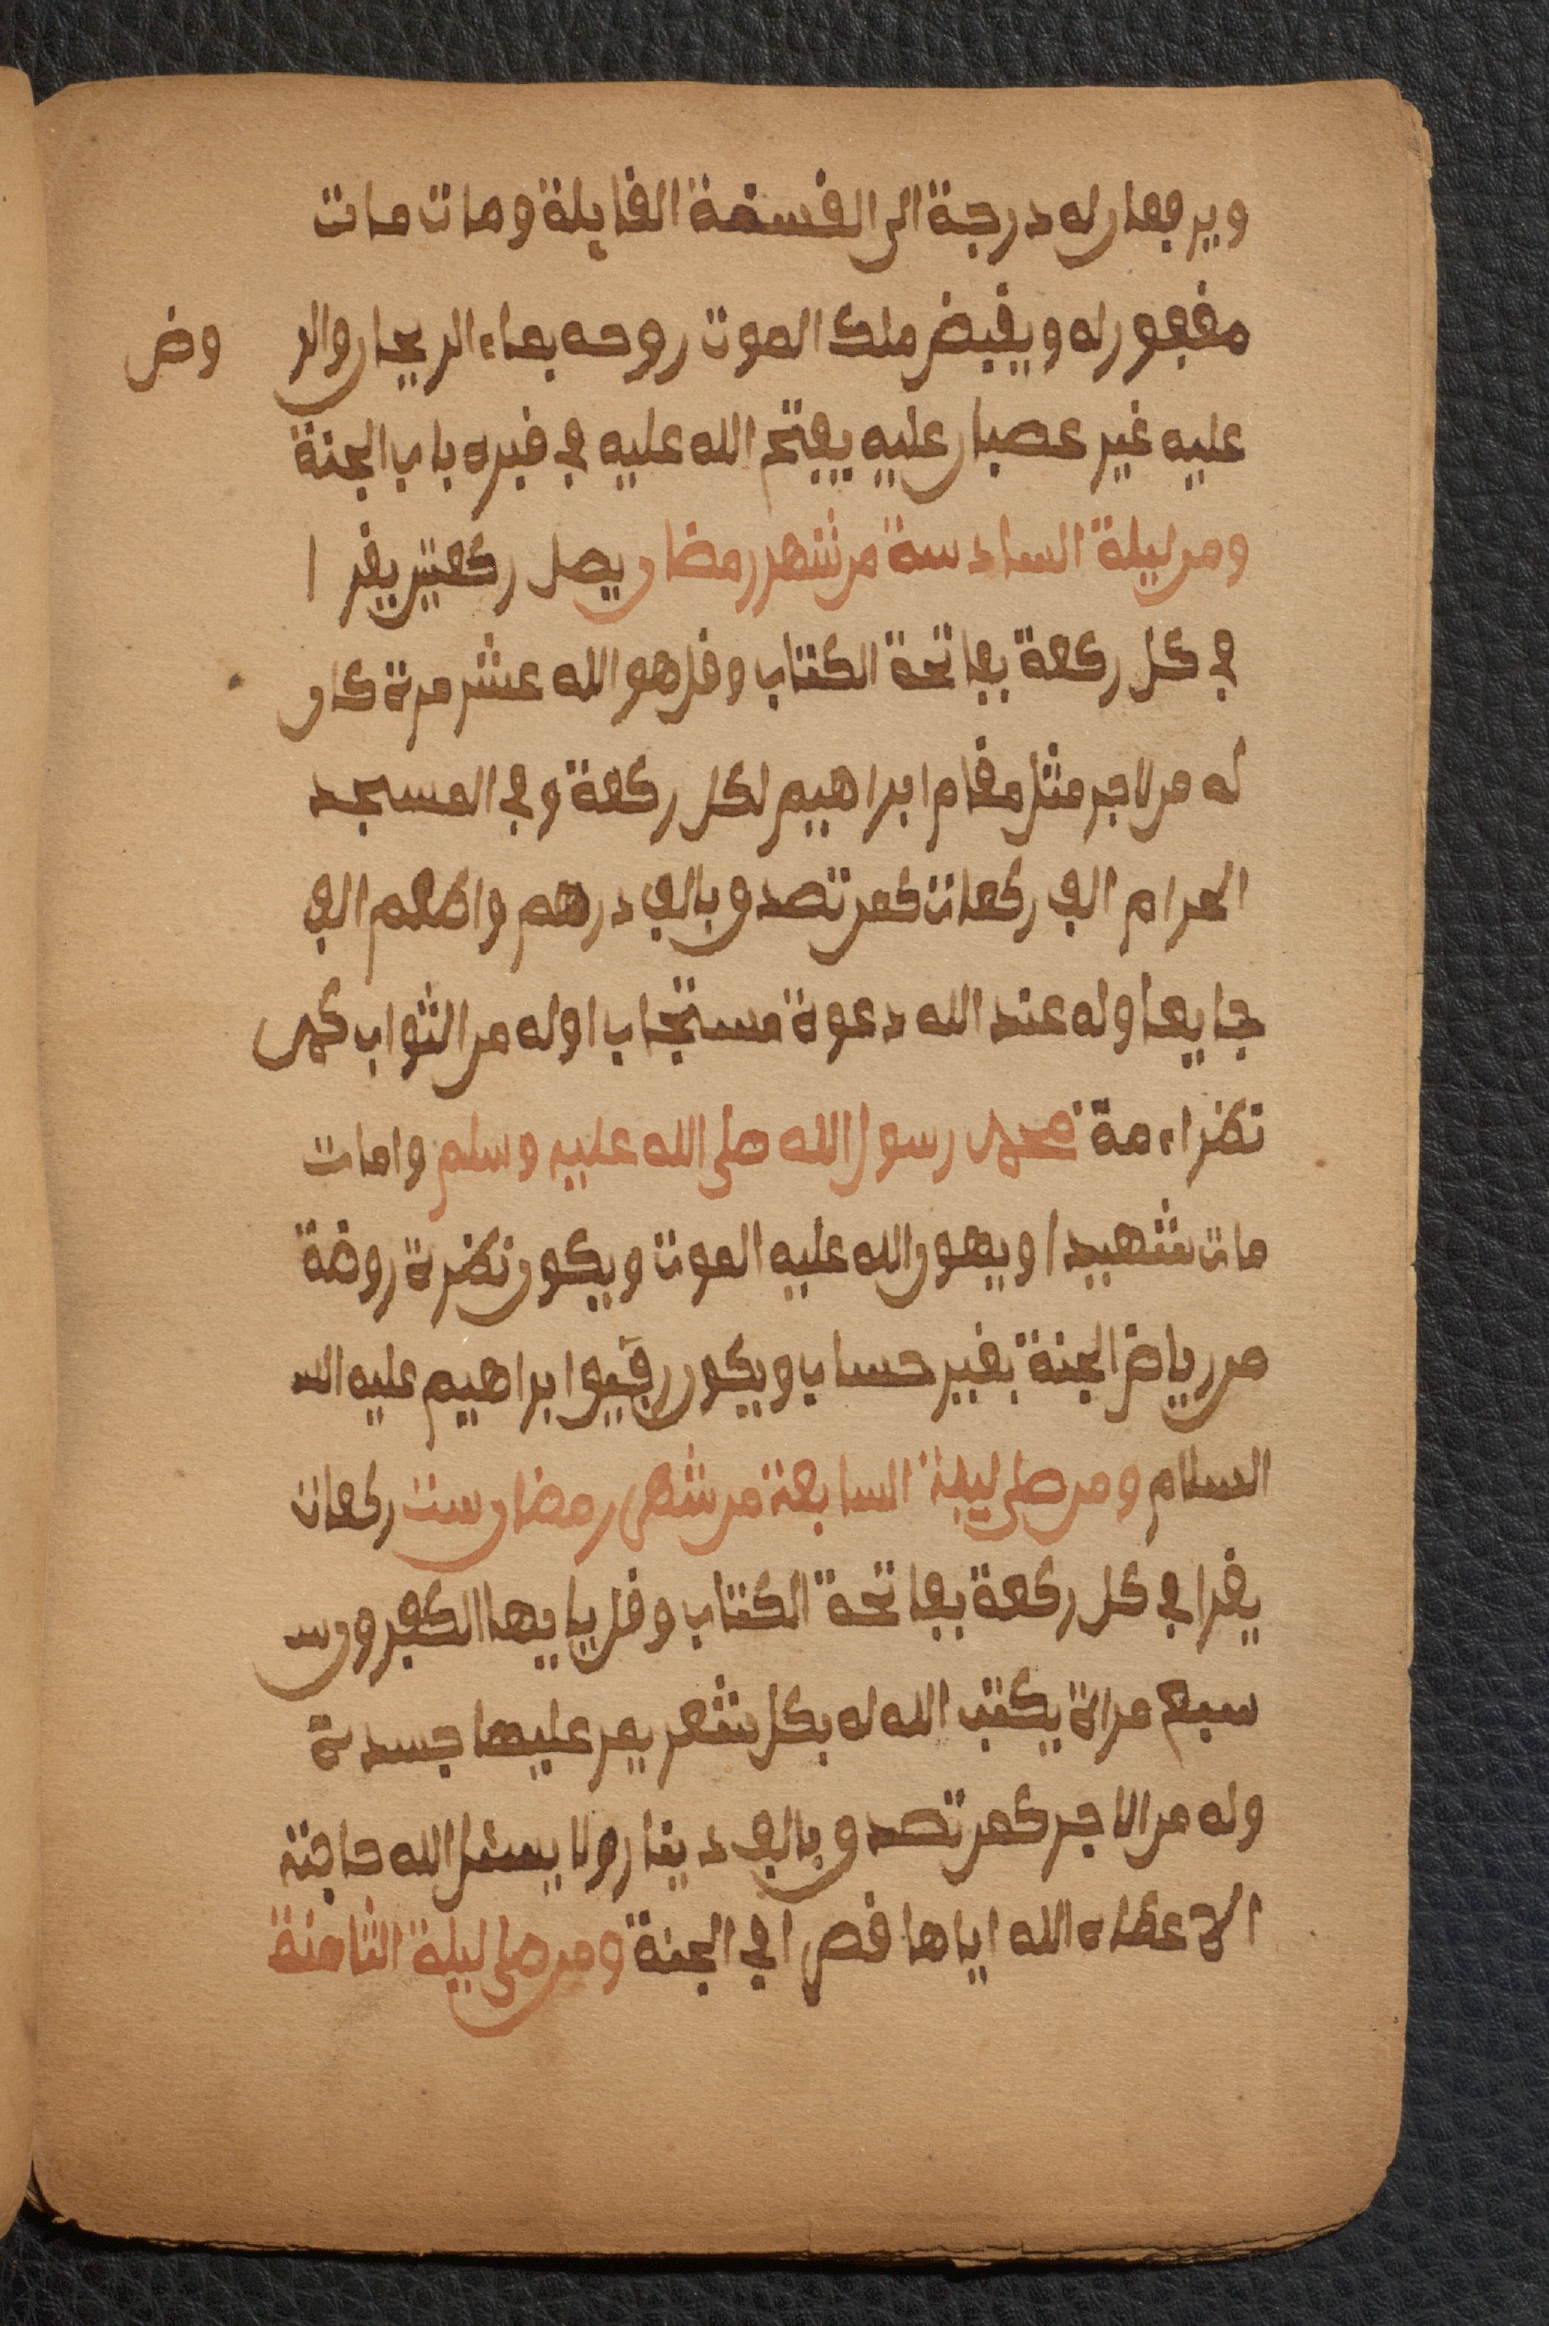 ويرفعان له درجة الى القسمة القابلة ومات مات
مغفور له ويقبض ملك الموت روحه بماء الريحان والر وض
عليه غير عصبان عليه يفتح الله عليه في قبره باب الجنة
ومن ليلة السادسة من شهر رمضان يصل ركعتين يقر ا
في كل ركعة بفاتحة الكتاب وقل هو الله عشر مرة كان
له من لاجر مثل مقام ابراهيم لكل ركعة وفي المسجد
الحرام الف ركعات كمن تصدق بالف درهم واطعم الف
جايعا وله عند الله دعوة مستجاب اوله من الثواب كمن
نظر اء مة محمد رسول الله صلى الله عليه وسلم وامات
مات شهيدا ويهون الله عليه الموت ويكون نظرة روضة
من رياض الجنة بغير حساب ويكون رفيق ابراهيم عليه الس
السلام ومن صلى ليلة السابعة من شهر رمضان ست ركعات
يقرا في كل ركعة بفاتحة الكتاب وقل يايها الكفرون س
سبع مراة يكتب الله له بكل شعر يمر عليها جسد ة
وله من الاجر كمن تصدق بالف دينار ولا يسئل الله حاجة
الا عطاه الله اياها قصرا في الجنة ومن صلى ليلة الثامنة